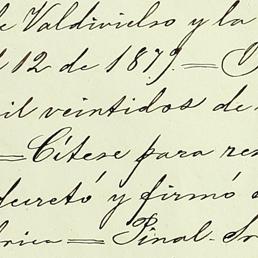 de Valdivielso y la
12 de 1879. =
mil veintidos de
= Cítese para
decretó y firmó
= Pinal - Sr